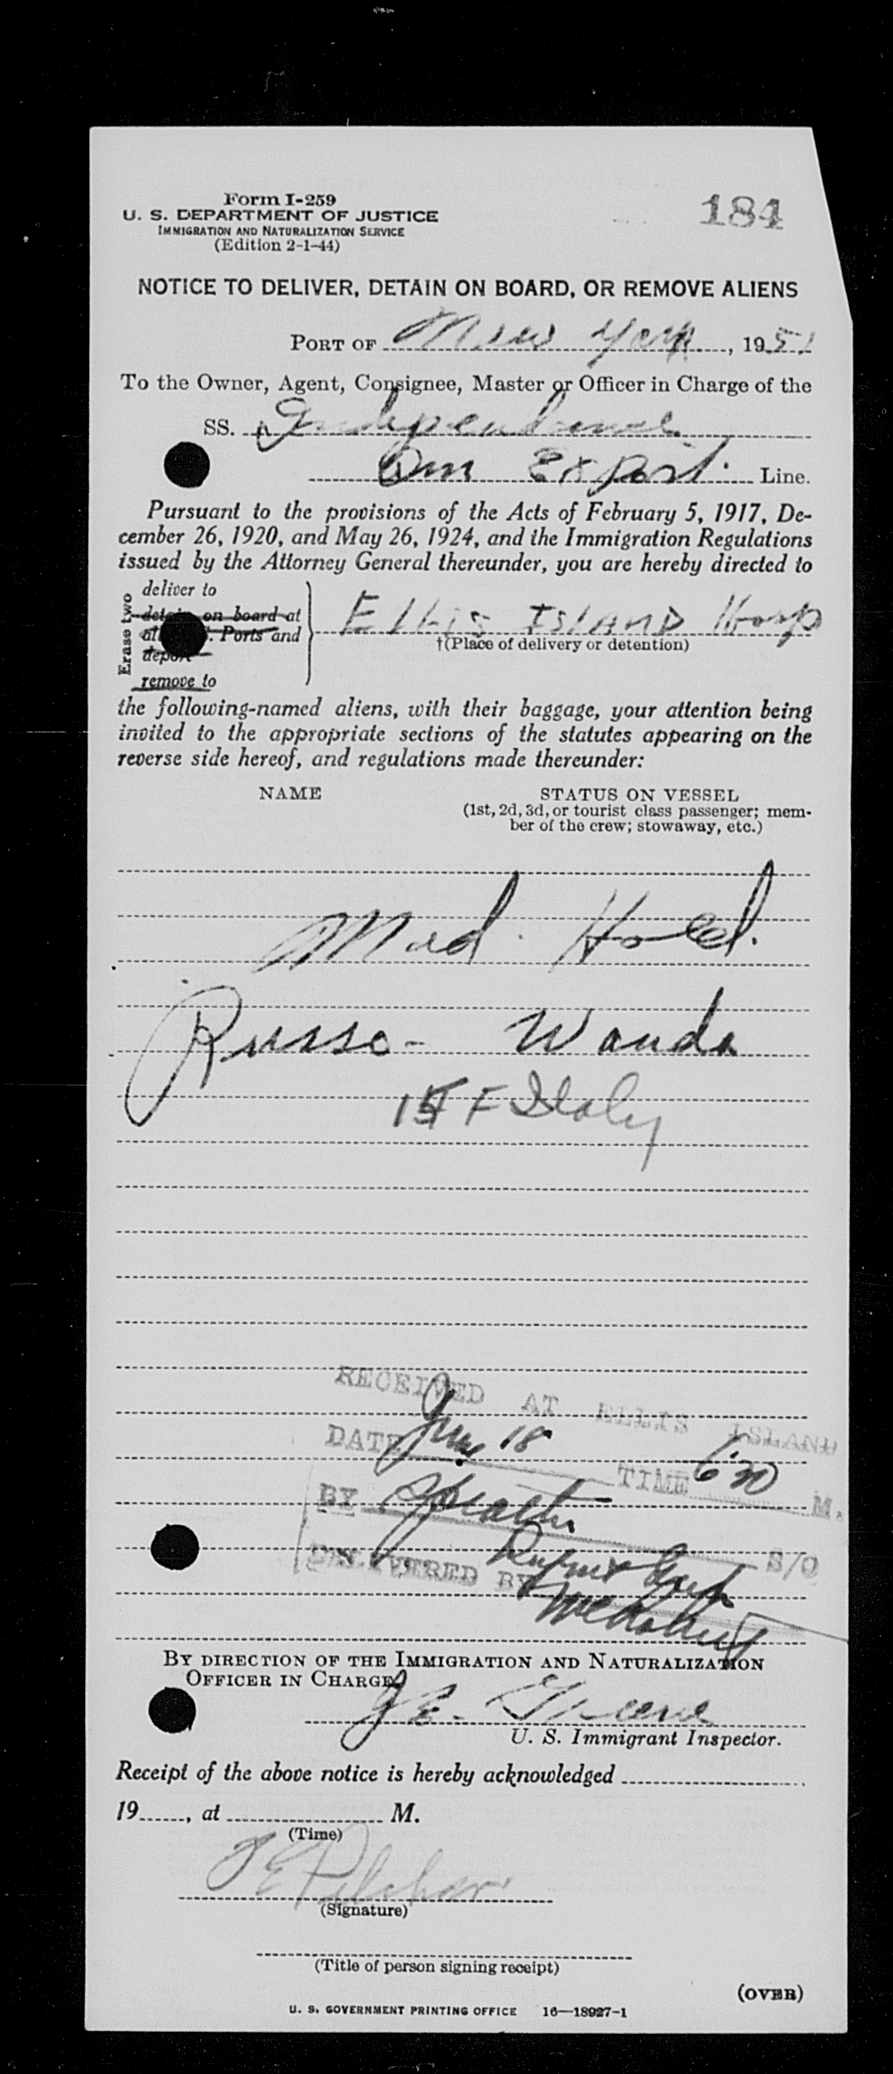 Form I-259
184
U. S. DEPARTMENT OF JUSTICE
IMMIGRATION AND NATURALIZATION SERVICE
(Edition 2-1-44)
NOTICE TO DELIVER, DETAIN ON BOARD, OR REMOVE ALIENS
PORT OF New York, 1951
To the Owner, Agent, Consignee, Master or Officer in Charge of the
SS. Independence
Am Export Line.
Pursuant to the provisions of the Acts of February 5, 1917, De-
cember 26, 1920, and May 26, 1924, and the Immigration Regulations
issued by the Attorney General thereunder, you are hereby directed to
Erase two
deliver to
detain on board at
all U. S. Ports and
deport
remove to
Ellis Island Hosp
†(Place of delivery or detention)
the following-named aliens, with their baggage, your attention being
invited to the appropriate sections of the statutes appearing on the
reverse side hereof, and regulations made thereunder:
NAME STATUS ON VESSEL
(1st, 2d, 3d, or tourist class passenger; mem-
ber of the crew; stowaway, etc.)
Med. Hold.
Russo - Wanda
F Italy
RECEIVED AT ELLIS ISLAND
DATE 18 TIME M.
BY S/O
DELIVERED BY
BY DIRECTION OF THE IMMIGRATION AND NATURALIZATION
OFFICER IN CHARGE
J E. Greene
U. S. Immigrant Inspector.
Receipt of the above notice is hereby acknowledged
19, at M.
(Time)
(Signature)
(Title of person signing receipt)
(OVER)
U. S. GOVERNMENT PRINTING OFFICE 16—18927-1